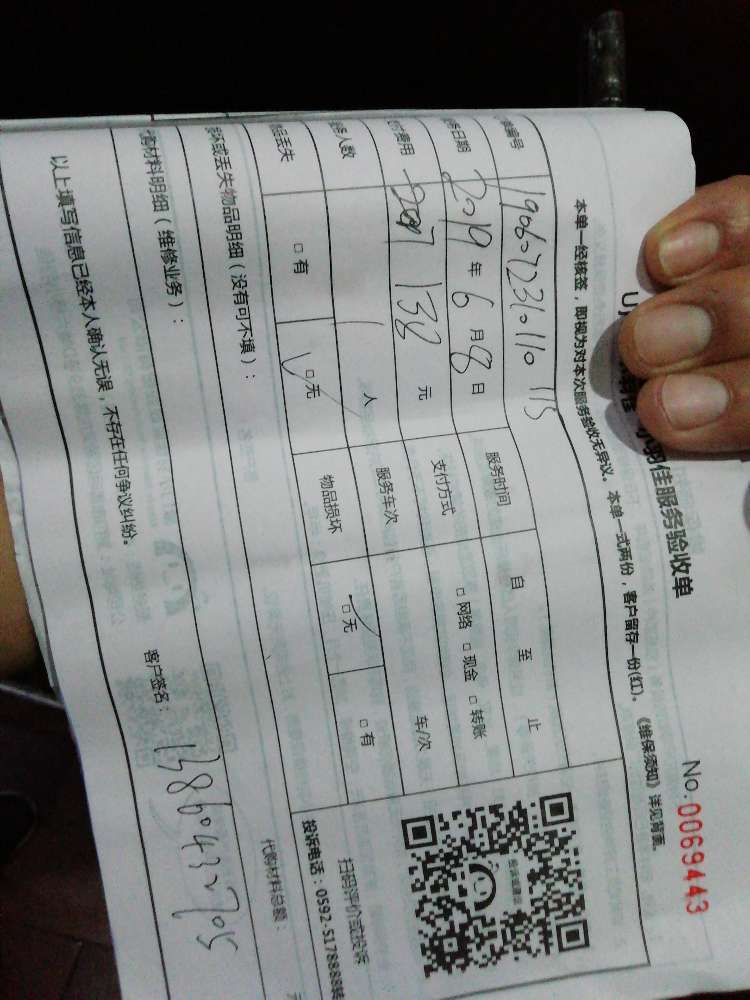 羽佳服务验收单
No:0069443
本单一经核签，即视为对本次服务验收无异议。本单一式两份，客户留存一份(红)。《维保须知》详见背面。
编号 服务时间 自 至 止
日期 2019 年 6 月 8 日 支付方式 □网络 □现金 □转账
费用 138 元 服务车次 车/次
人数 1 人 物品损坏 □无 □有
丢失 □有 □无
坏或丢失物品明细（没有可不填）：
扫码评价或投诉
投诉电话：0592-5178888转
材料明细（维修业务）：
代购材料总额：
以上填写信息已经本人确认无误，不存在任何争议纠纷。
客户签名：